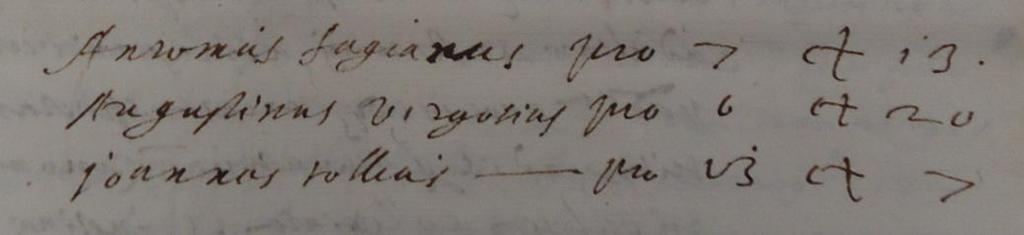 Antonius fagianus pro 7 ct 13.
Augustinus Virgosius pro 0 ct 20
joannes tollius — pro 13 ct 7